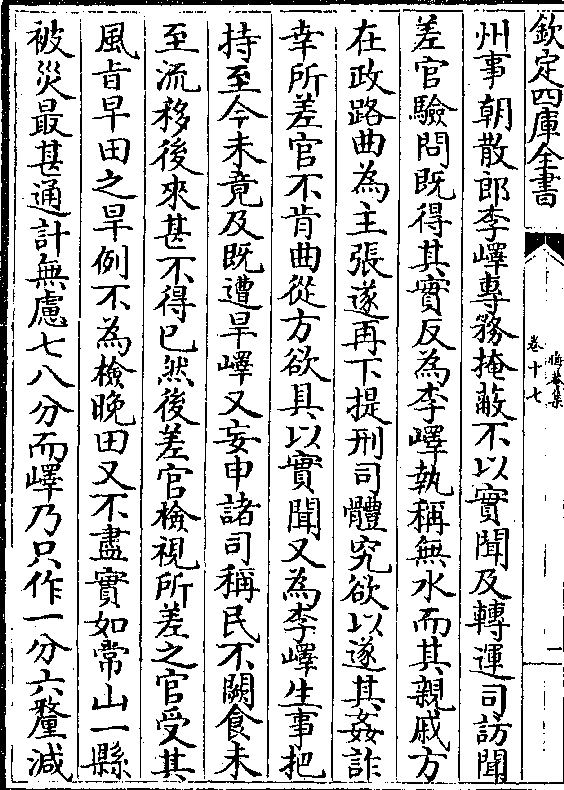 欽定四庫全書
晦菴集
卷十七
二
州事朝散郎李嶧專務掩蔽不以實聞及轉運司訪聞
差官驗問既得其實反為李嶧執稱無水而其親戚方
在政路曲為主張遂再下提刑司體究欲以遂其姦詐
幸所差官不肯曲從方欲具以實聞又為李嶧生事把
持至今未竟及既遭旱嶧又妄申諸司稱民不闕食未
至流移後來甚不得已然後差官檢視所差之官受其
風㫖早田之旱例不為檢晚田又不盡實如常山一縣
被災最甚通計無慮七八分而嶧乃只作一分六釐減